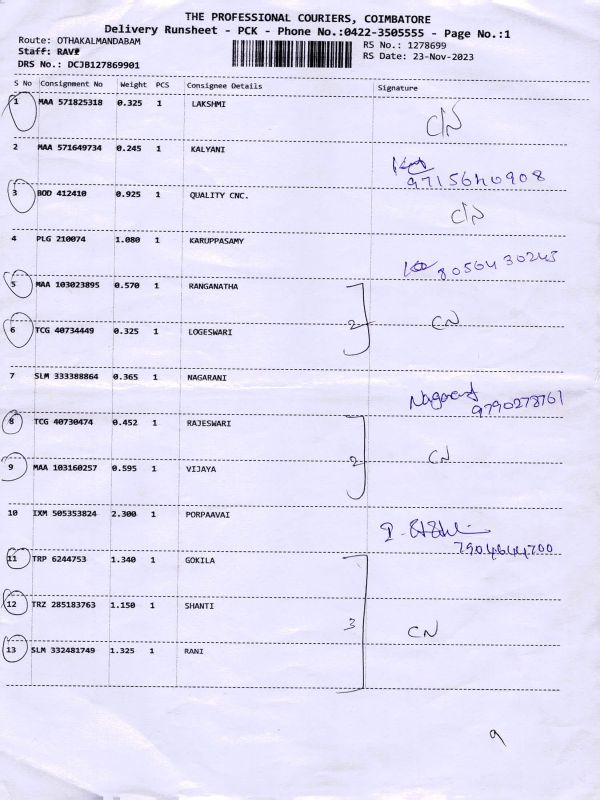 THE PROFESSIONAL COURIERS, COIMBATORE
Delivery Runsheet - PCK - Phone No.:0422-3505555 - Page No.:1
Route: OTHAKALMANDABAM
RS No.: 1278699
Staff: RAVI
RS Date: 23-Nov-2023
DRS No.: DCJB127869901
S No Consignment No Weight PCS Consignee Details Signature
1 MAA 571825318 0.325 1 LAKSHMI CN
2 MAA 571649734 0.245 1 KALYANI
9715640908
3 BOD 412410 0.925 1 QUALITY CNC. CN
4 PLG 210074 1.080 1 KARUPPASAMY
8056430245
5 MAA 103023895 0.570 1 RANGANATHA
2 CN
6 TCG 40734449 0.325 1 LOGESWARI
7 SLM 333388864 0.365 1 NAGARANI
Nagarani
9790278761
8 TCG 40730474 0.452 1 RAJESWARI
2 CN
9 MAA 103160257 0.595 1 VIJAYA
10 IXM 505353824 2.300 1 PORPAAVAI
7904644700
11 TRP 6244753 1.340 1 GOKILA
12 TRZ 285183763 1.150 1 SHANTI
3 CN
13 SLM 332481749 1.325 1 RANI
9